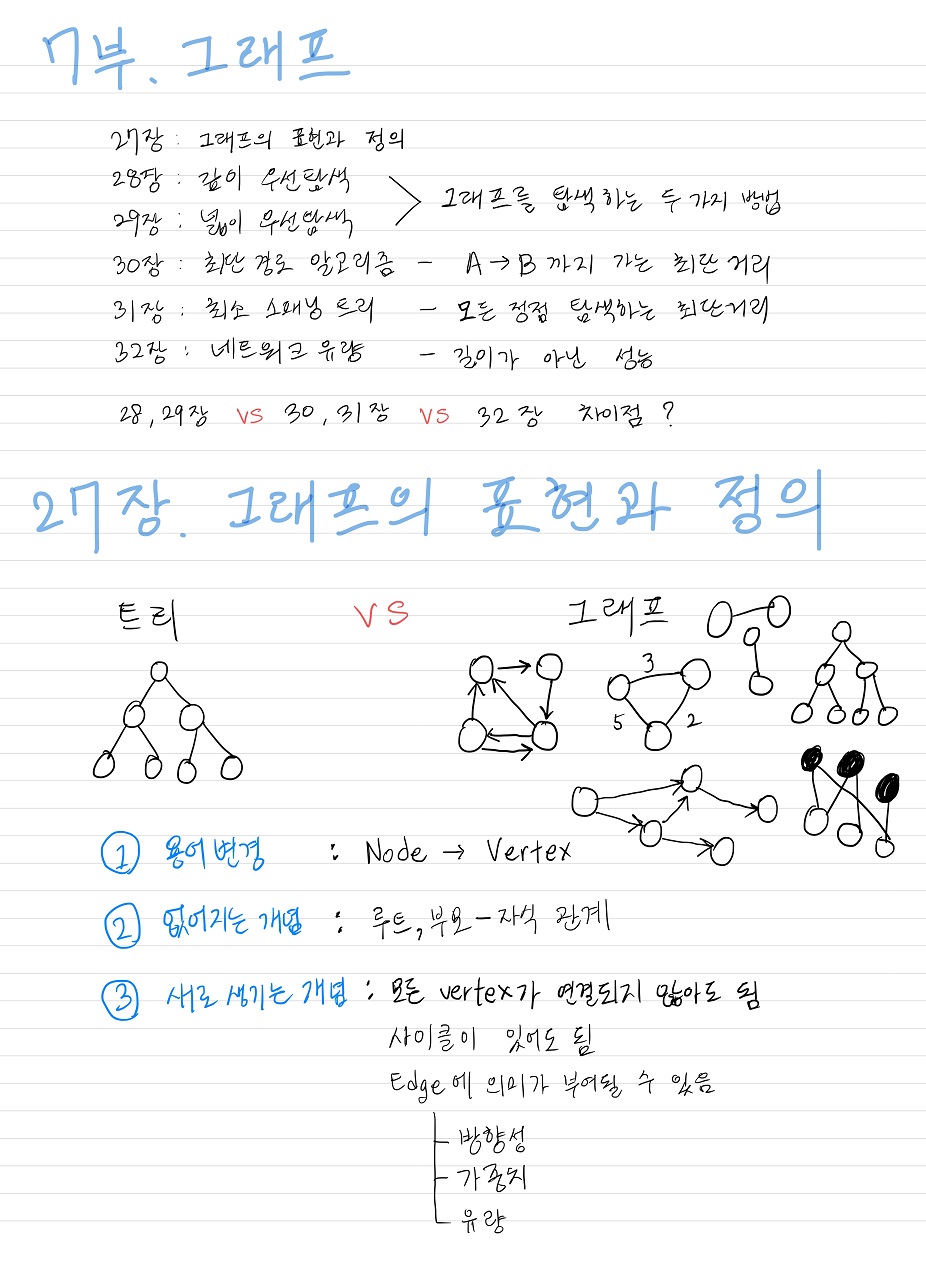 7부. 그래프
27장 : 그래프의 표현과 정의
28장 : 깊이 우선탐색
29장 : 넓이 우선탐색
> 그래프를 탐색하는 두 가지 방법
30장 : 최단 경로 알고리즘 - A → B 까지 가는 최단 거리
31장 : 최소 스패닝 트리 - 모든 정점 탐색하는 최단거리
32장 : 네트워크 유량 - 길이가 아닌 성능
28, 29장 VS 30, 31장 VS 32장 차이점 ?
27장. 그래프의 표현과 정의
트리 VS 그래프
3
5 2
① 용어변경 : Node → Vertex
② 없어지는 개념 : 루트, 부모-자식 관계
③ 새로 생기는 개념 : 모든 vertex가 연결되지 않아도 됨
사이클이 있어도 됨
Edge에 의미가 부여될 수 있음
방향성
가중치
유량